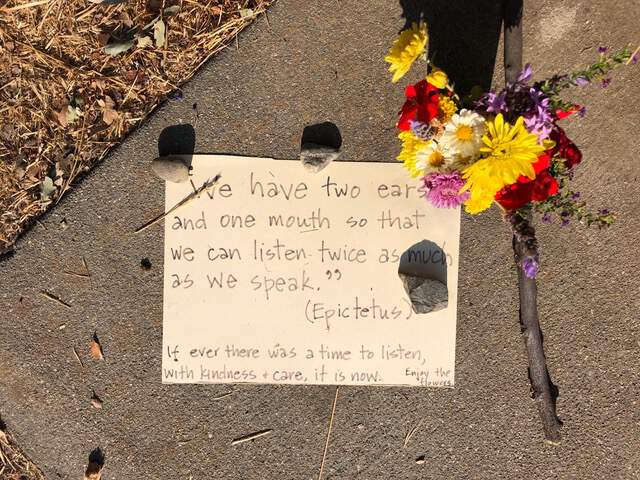 "We have two ears
and one mouth so that
we can listen twice as much
as we speak."
(Epictetus)
If ever there was a time to listen,
with kindness + care, it is now.
Enjoy the
flowers